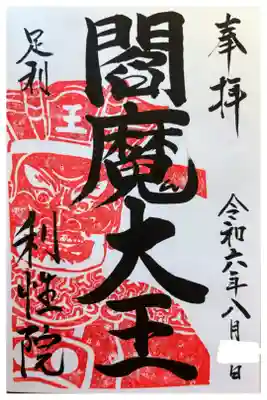 奉拝
令和六年八月 日
閻魔大王
足利
利性院
王